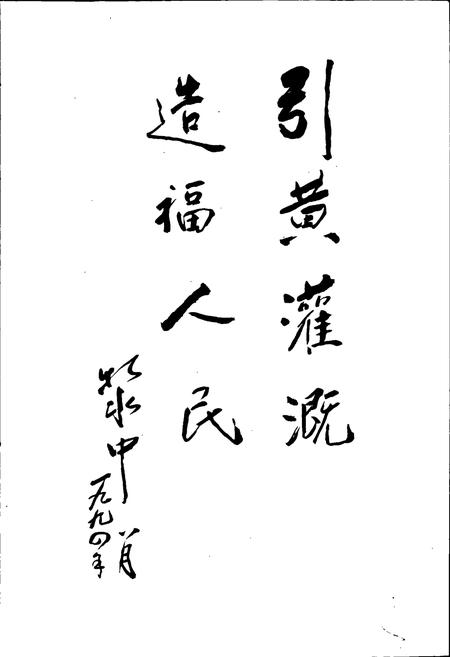 引黄灌溉
造福人民
中
一九九四年
八月